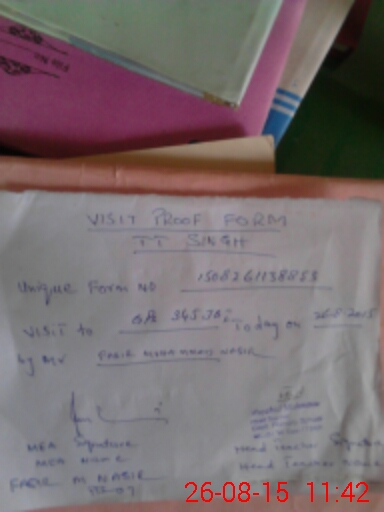 File No.
VISIT PROOF FORM
TT SINGH
Unique Form NO 1508261138853
VISIT to Today on 26-8-2015
by Mr FAKIR MOHAMMAD NASIR
MEA Signature
MEA Name
FAKIR M NASIR
Head Teacher Signature
Head Teacher Name
26-08-15 11:42